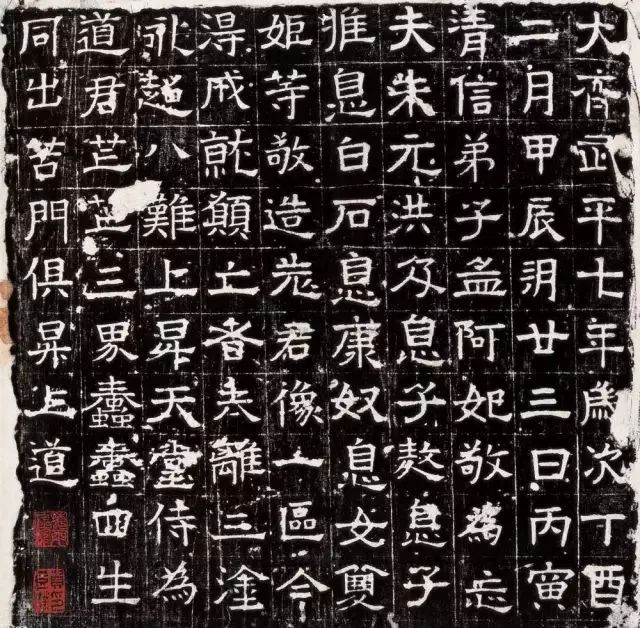 大齊武平七年歲次丁酉
二月甲辰朔廿三日丙寅
清信弟子孟阿妃敬為忘
夫朱元洪及息子敖息子
推息白石息康奴息女雙
姬等敬造老君像一區今
淂成就願亡者去離三塗
永超八難上昇天堂侍為
道君芒芒三界蠢蠢四生
同出苦門俱昇上道